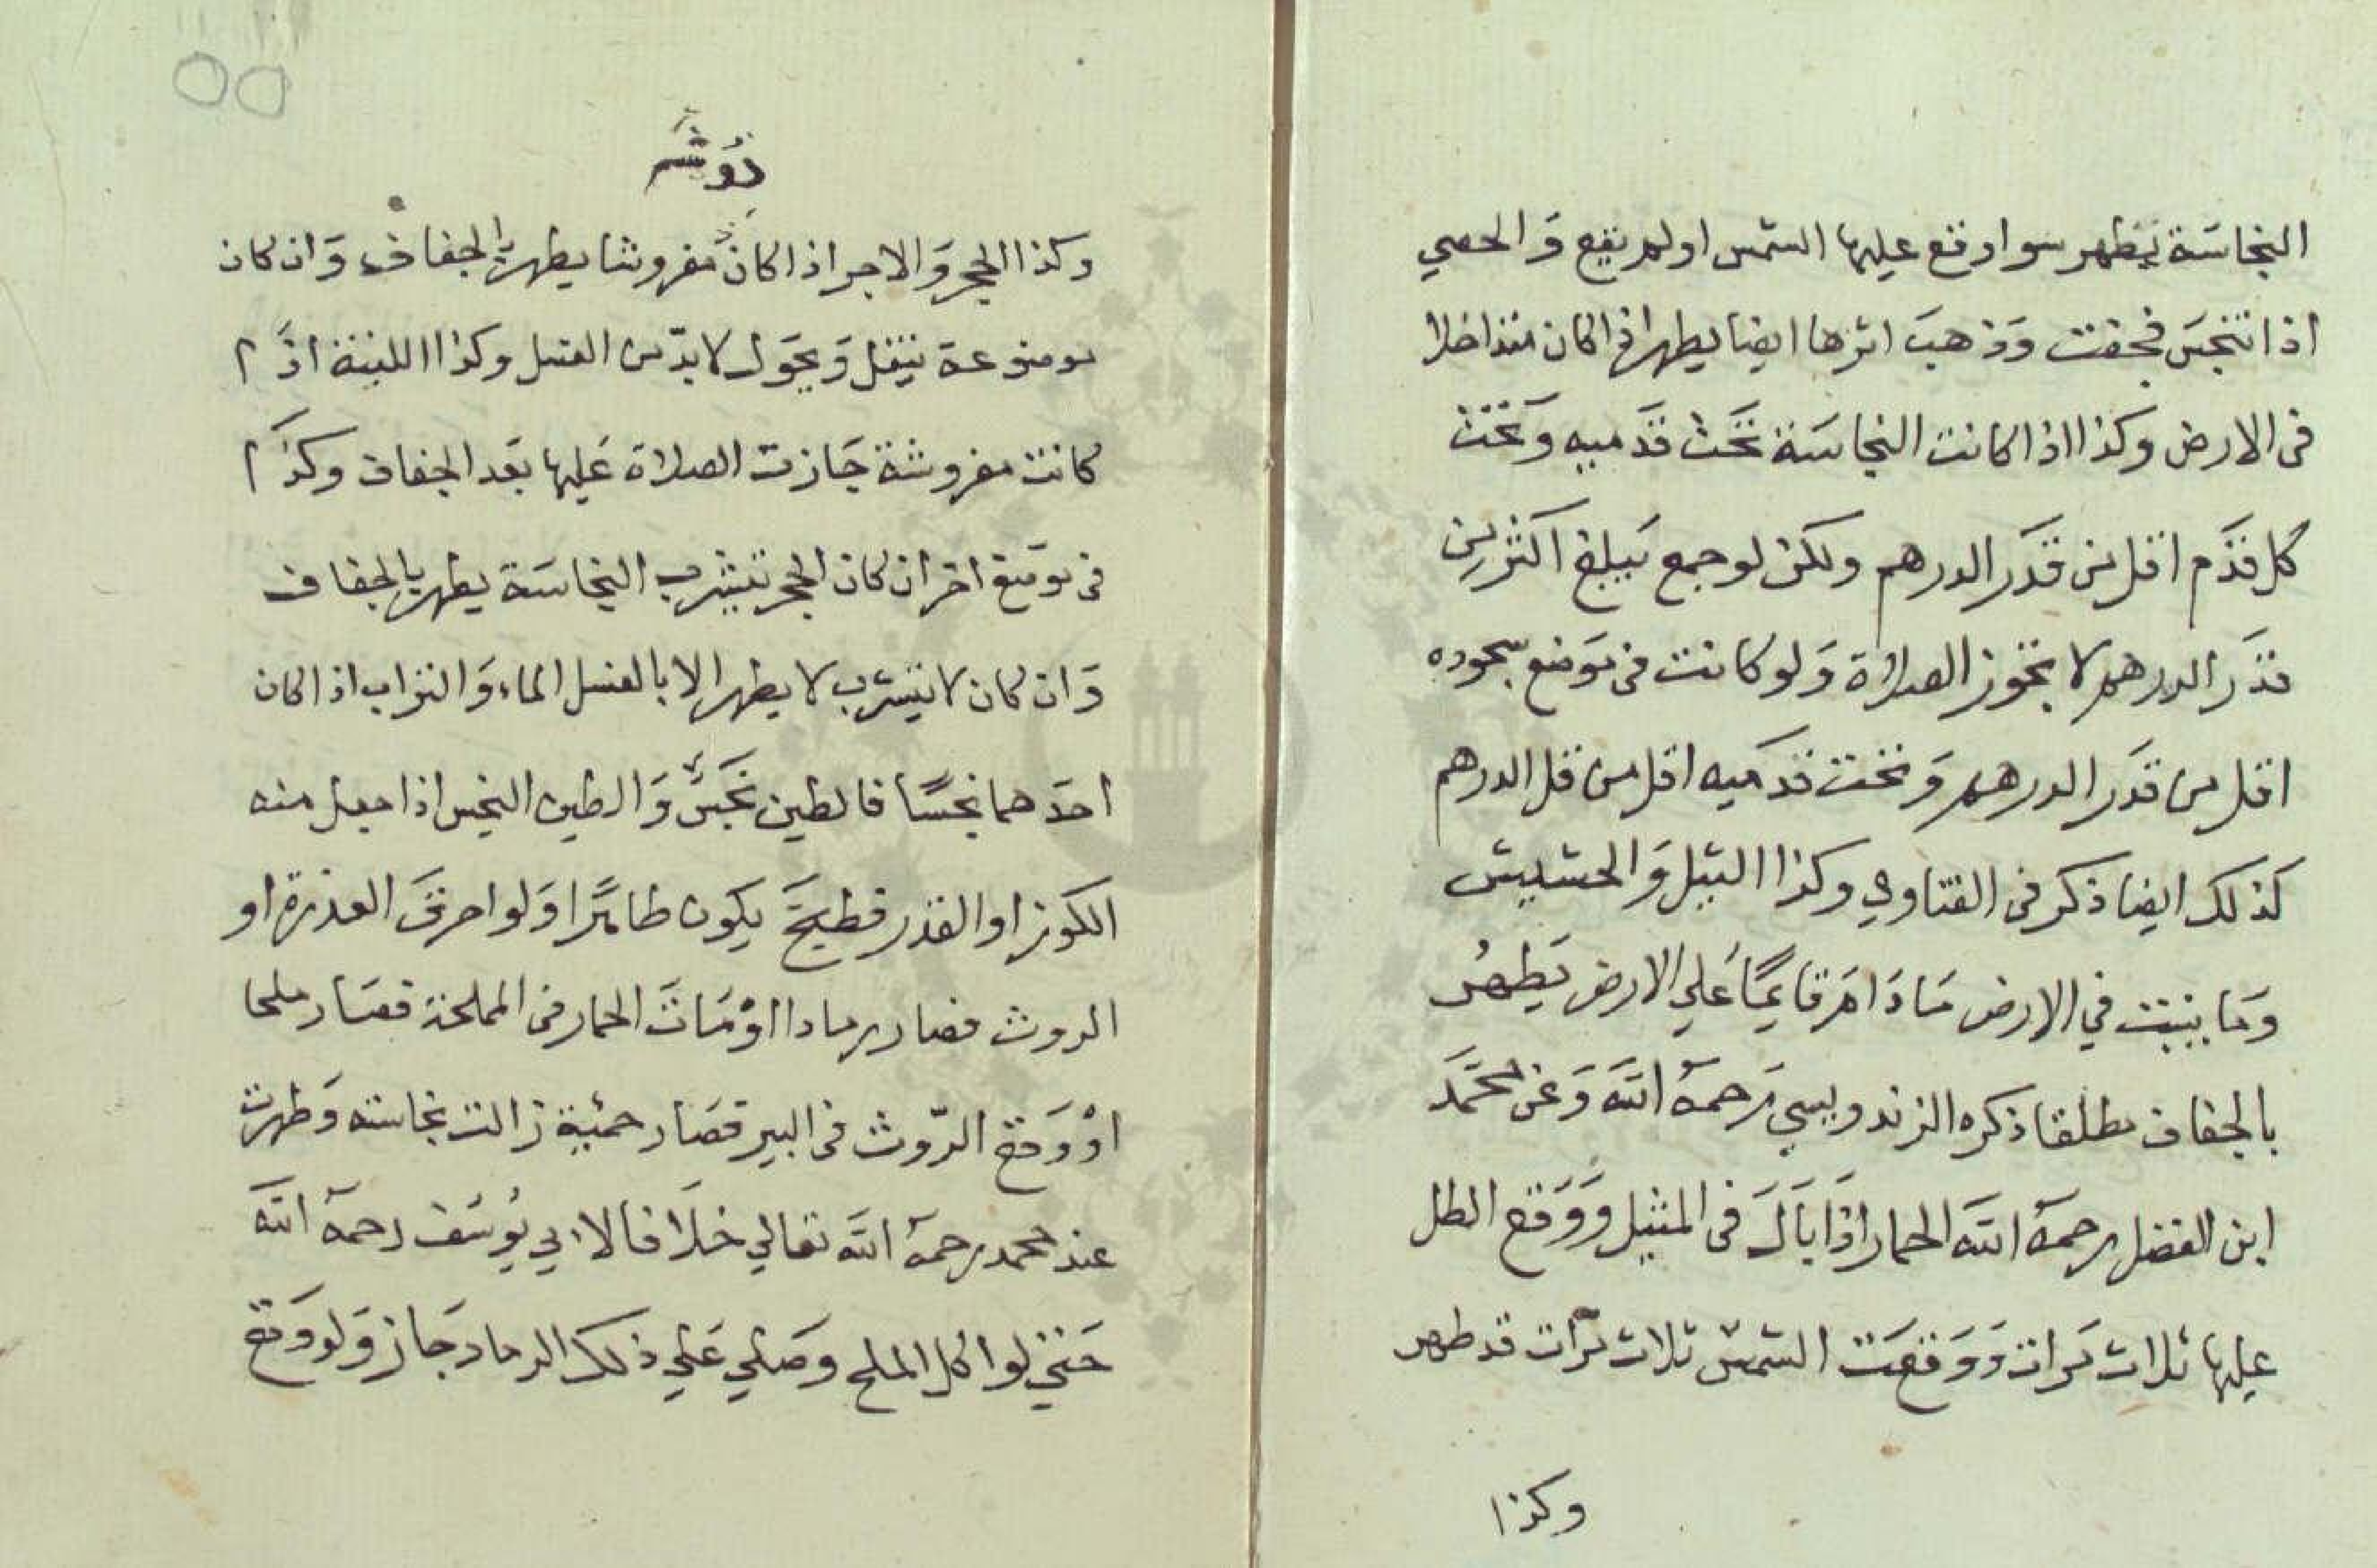 النجاسَة يَطهر سوا وقع عليها الشمس او لم يقع وَالحصي
اذا تنجَس فجفت وَذهبَ اثرها ايضا يطهر اذا كان متداخلا
فى الارض وكذا اذا كانت النجاسَة تحَت قدَميه وَتحت
كل قدَم اقل من قدَر الدرهم ولكن لو جمع يَبلغ اكثر من
قدَر الدرهم لا تجَوز الصلاة وَلو كانت فى موَضع سجوده
اقل من قدَر الدرهم وَتحت قدَميه اقل من قل الدرهم
كذلك ايضا ذكر فى الفتاوي وكذا الثيل وَالحشيش
وَما ينبت في الارض مَا دَامَ قايمًا عَلي الارض يَطهُر
بالجفاف مطلقا ذكره الزندويسي رَحمهُ اللهَ وَعن محمَّد
ابن الفضل رحمهُ اللهَ الحمار اذَا بَالَ فى المثيل وَوَقع الطل
عليها ثلاث مَرات وَوَقعَت الشمس ثلاث مرَّات قد طهر
وكذا
وكذا الحجر وَالاجر اذا كانَ مفروشا يطهر بالجفاف وَان كان
موضوعة ينقل وَيحوَل لا بدّ من الغسل وكذا اللبنة اذَا
كانت مفروشة جَازت الصلاة عَليها بَعد الجفاف وكذَا
فى موَضع اخر ان كان الحجر يتشرب النجاسَة يطهر بالجفاف
وَان كان لا يتشرب لا يطهر الا بالغسل الماء وَالتراب اذا كان
احدَهما نجسًا فالطين نجَسٌ وَالطين النجس اذا جعل منه
الكوز او القدر فطبخَ يكون طاهرًا وَلو احرقَ العذرة او
الروث فصار رمادا اوْ مَاتَ الحمار فى المملحة فصَار ملحا
اوْ وَقع الرّوث فى البير فصَار حمئية زالت نجاسته وَطهرت
عند محمد رحمهُ اللهَ تعالي خلَافا لابي يُوسَف رحمهُ اللهَ
حَتي لو اكل الملح وصَلي عَلي ذلك الرماد جَاز وَلو وَقع